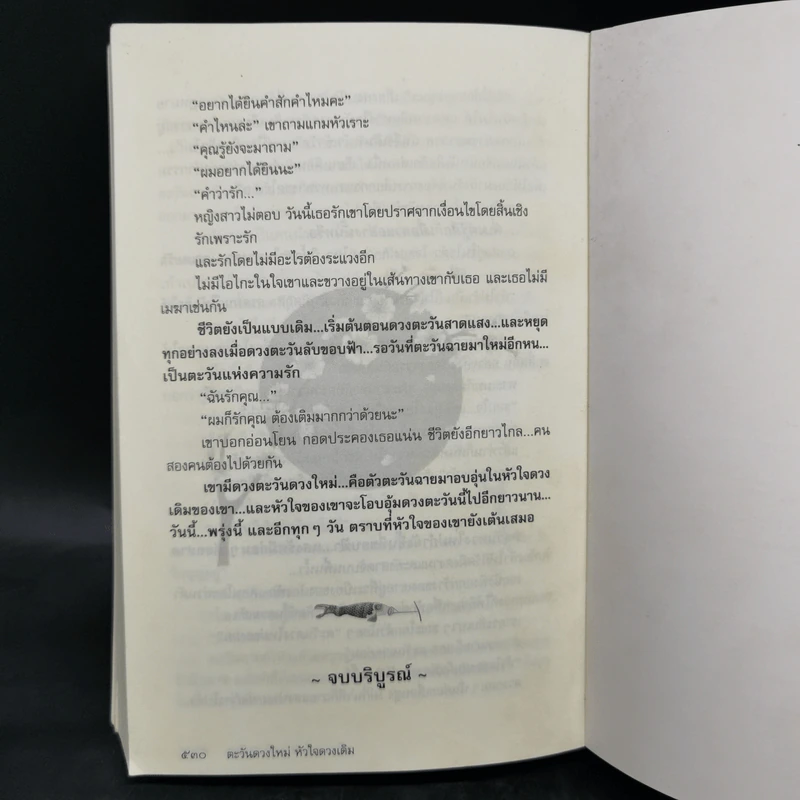 “อยากได้ยินคำสักคำไหมคะ”
“คำไหนล่ะ” เขาถามแกมหัวเราะ
“คุณรู้ยังจะมาถาม”
“ผมอยากได้ยินนะ”
“คำว่ารัก...”
หญิงสาวไม่ตอบ วันนี้เธอรักเขาโดยปราศจากเงื่อนไขโดยสิ้นเชิง
รักเพราะรัก
และรักโดยไม่มีอะไรต้องระแวงอีก
ไม่มีไอไกะในใจเขาและขวางอยู่ในเส้นทางเขากับเธอ และเธอไม่มี
เมฆาเช่นกัน
ชีวิตยังเป็นแบบเดิม...เริ่มต้นตอนดวงตะวันสาดแสง...และหยุด
ทุกอย่างลงเมื่อดวงตะวันลับขอบฟ้า...รอวันที่ตะวันฉายมาใหม่อีกหน...
เป็นตะวันแห่งความรัก
“ฉันรักคุณ...”
“ผมก็รักคุณ ต้องเติมมากกว่าด้วยนะ”
เขาบอกอ่อนโยน กอดประคองเธอแน่น ชีวิตยังอีกยาวไกล...คน
สองคนต้องไปด้วยกัน
เขามีดวงตะวันดวงใหม่...คือตัวตะวันฉายมาอบอุ่นในหัวใจดวง
เดิมของเขา...และหัวใจของเขาจะโอบอุ้มดวงตะวันนี้ไปอีกยาวนาน...
วันนี้...พรุ่งนี้ และอีกทุกๆ วัน ตราบที่หัวใจของเขายังเต้นเสมอ
~ จบบริบูรณ์ ~
๕๓๐ ตะวันดวงใหม่ หัวใจดวงเดิม